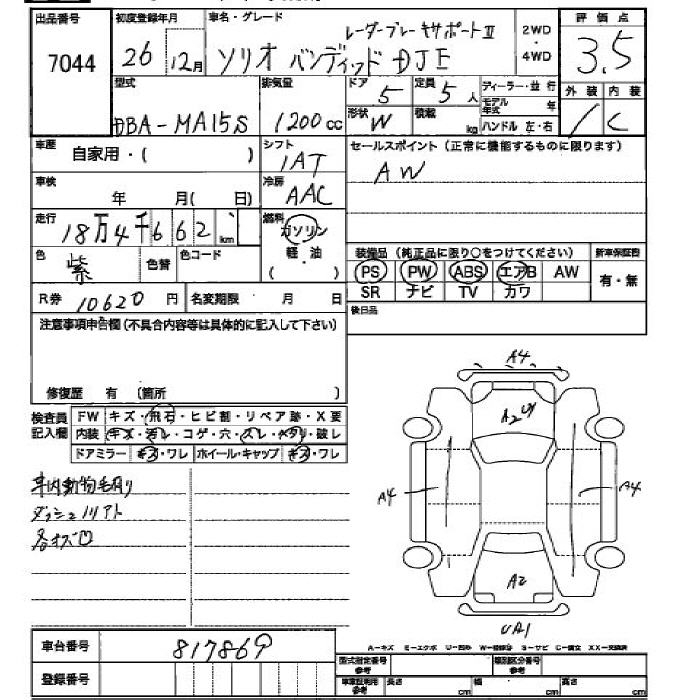 出品番号 初度登録年月 車名・グレード レーダーブレーキサポートⅡ 2WD・4WD 評価点
7044 26年12月 ソリオ バンディット DJE 3.5
型式 排気量 ドア 5 定員 5人 ディーラー・並行 外装 内装
DBA-MA15S 1200cc 形状 W 積載 kg モデル年式 年 ハンドル 左・右 C
車歴 自家用・( ) シフト 1AT セールスポイント (正常に機能するものに限ります)
車検 年 月( 日) 冷房 AAC AW
走行 18万4千662km 燃料 ガソリン 軽油 ( )
色 紫 色替 色コード 装備品 (純正品に限り○をつけてください) 新車保証書
PS PW ABS エアB AW 有・無
R券 10620円 名変期限 月 日 SR ナビ TV カワ
注意事項申告欄(不具合内容等は具体的に記入して下さい) 後日品
修復歴 有 (箇所 )
検査員記入欄 FW キズ・飛石・ヒビ割・リペア跡・X要
内装 キズ・汚レ・コゲ・穴・スレ・ヘタリ・破レ
ドアミラー キズ・ワレ ホイール・キャップ キズ・ワレ
車内動物毛有り
ダッシュソリアト
A4
A2
A4 A4
A2
UA1
A-キズ E-エクボ U-凹み W-補修跡 S-サビ C-腐食 XX-交換済
車台番号 817869 型式指定番号 参考 類別区分番号 参考
登録番号 車庫証明用 参考 長さ cm 幅 cm 高さ cm